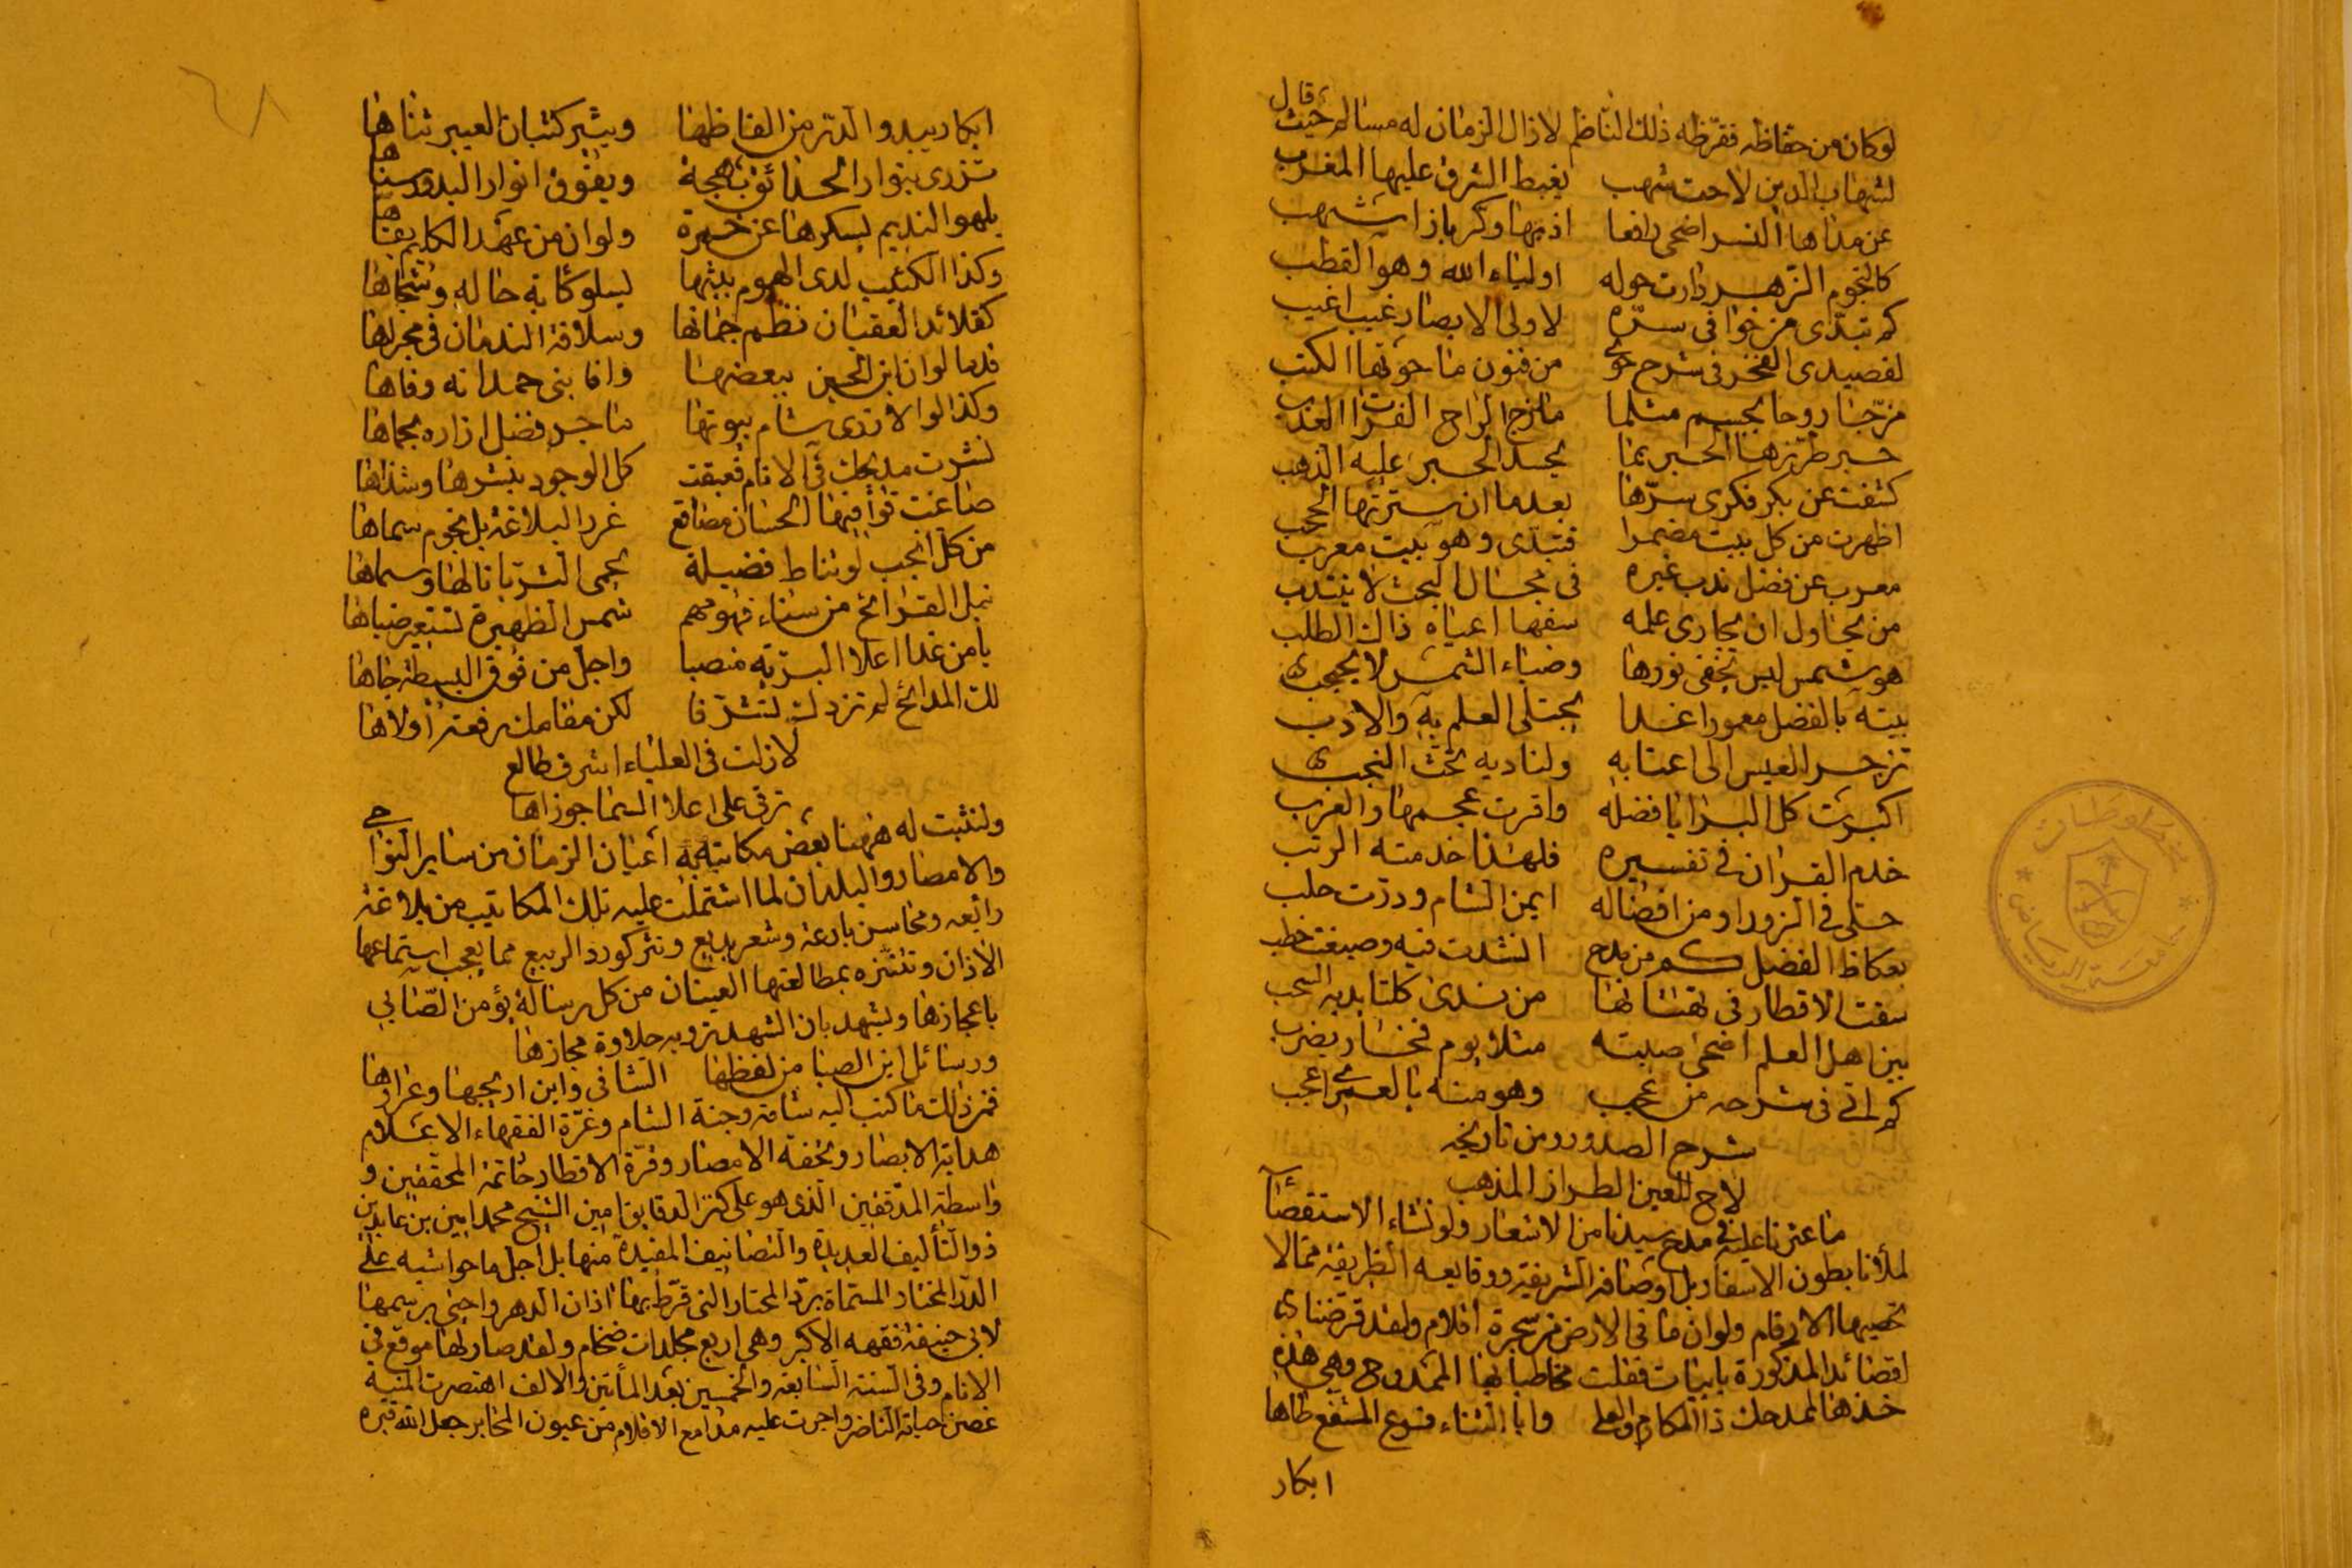 قال
لوكان من حفاظه فقرظه ذلك الناظم لازال الزمان له مسالم حيث
لشهاب الدين لاحت شهب يغبط الشرق عليها المغرب
عن مداها النسر اضحى دافعا اذ بها وكر باز اشهب
كالنجوم الزهر دارت حوله اولياء الله وهو القطب
كم تبدى من خوافى سره لاولى الابصار غيب اغيب
لقصيدى الفخر فى شرح حوى من فنون ما حوتها الكتب
مزجنا روحا بجسم مثلما مازج الراح الفرات العذب
حبر طرزها الحبر بما يحسد الحبر عليه الذهب
كشفت عن بكر فكرى سترها بعدما ان سترتها الحجب
اظهرت من كل بيت مضمرا فتبدى وهو بيت معرب
معرب عن فضل ندب غيره فى مجال البحث لا ينتدب
من يحاول ان يجارى علمه سفها اعياه ذاك الطلب
هو شمس ليس يخفى نورها وضياء الشمس لا يحتجب
بيته بالفضل معمورا غدا يجتلى العلم به والادب
تزجر العيس الى اعتابه ولناديه تحث النجب
اكبرت كل البرايا فضله واقرت عجمها والعرب
خدم القران فى تفسيره فلهذا خدمته الرتب
حل فى الزورا ومن افضاله ايمن الشام ودرت حلب
بعكاظ الفضل كم من مدح انشدت فيه وصيغت خطب
سقت الاقطار فى تهتانها من ندى كلتا يديه السحب
بين اهل العلم اضحى صيته مثلا يوم فخار يضرب
كم اتى فى شرحه من عجب وهو منه بالعمرى اعجب
شرح الصدور ومن تاريخه
لاح للعين الطراز المذهب
ما عثرنا عليه فى مدح سيدنا من الاشعار ولو نشاء الاستقصاآ
لملأنا بطون الاسفار بل اوصافه الشريفة ووقايعه الظريفة مما لا
تحصيها الارقام ولو ان ما فى الارض من شجرة اقلام ولقد قرضنا
القصائد المذكورة بابيات فقلت مخاطبا بها الممدوح وهى هذه
خذها لمدحك ذا المكارم والعلى وابا الثناء فرع المشفع طاها
ابكار
ابكار يبدو الدر من الفاظها ويثير كثبان العبير ثناها
تزرى بنوار الحدائق بهجة ويفوق انوار البدور سناها
يلهو النديم بسكرها عن خمرة ولو ان من عهد الكليم بقاها
وكذا الكئيب لدى الهموم ببثها ليسلو كآبة حاله وشجاها
كقلائد العقيان نظم جمانها وسلافة الندمان فى مجراها
قدما لو ان ابن الحسين ببعضها وافا بنى حمدانه وفاها
وكذا لو الازدى شام بيوتها ما جر فضل ازاره بحماها
نشرت مديحك فى الانام فعبقت كل الوجود بنشرها وشذاها
صاغت قوافيها الحسان مصاقع غرر البلاغة بل نجوم سماها
من كل انجب لو تناط فضيلة بحمى الثريا نالها وسماها
نبل القرائح من سناء فهومهم شمس الظهيرة تستعير ضياها
يا من غدا اعلا البرية منصبا واجل من فوق البسيطة جاها
لك المدائح لم تزدك تشرفا لكن مقامك رفعة اولاها
لازلت فى العلياء اشرف طالع
ترقى على اعلا السما جوزاها
ولنثبت له ههنا بعض مكاتبة اعيان الزمان من ساير النواحى
والامصار والبلدان لما اشتملت عليه تلك المكاتيب من بلاغة
رائعه ومحاسن بارعة وشعر بديع ونثر كورد الربيع مما يعجب استماعها
الاذان وتتنزه بمطالعتها العينان من كل رسالة يؤمن الصابى
باعجازها ويشهد بان الشهد تزويه حلاوة مجازها
ورسائل ابن الصبا من لفظها الشافى وابن اريجها وعرارها
فمن ذلك ما كتب اليه شامة وجنة الشام وغرة الفقهاء الاعلام
هداية الابصار وتحفة الامصار وقرة الاقطار خاتمة المحققين و
واسطة المدققين الذى هو على كنز الدقايق امين الشيخ محمد امين بن عابدين
ذو التأليف العديدة والتصانيف المفيدة منها بل اجلها حواشيه على
الدر المختار المسماة برد المحتار التى قرط بها اذان الدهر واحيى برسمها
لابى حنيفة فقهه الاكبر وهى اربع مجلدات ضخام ولقد صار لها موقع فى
الانام وفى السنة السابعة والخمسين بعد المأتين والالف اهتصرت المنية
غصن حياته الناضر واجرت عليه مدامع الاقلام من عيون المحابر جعل الله قبره